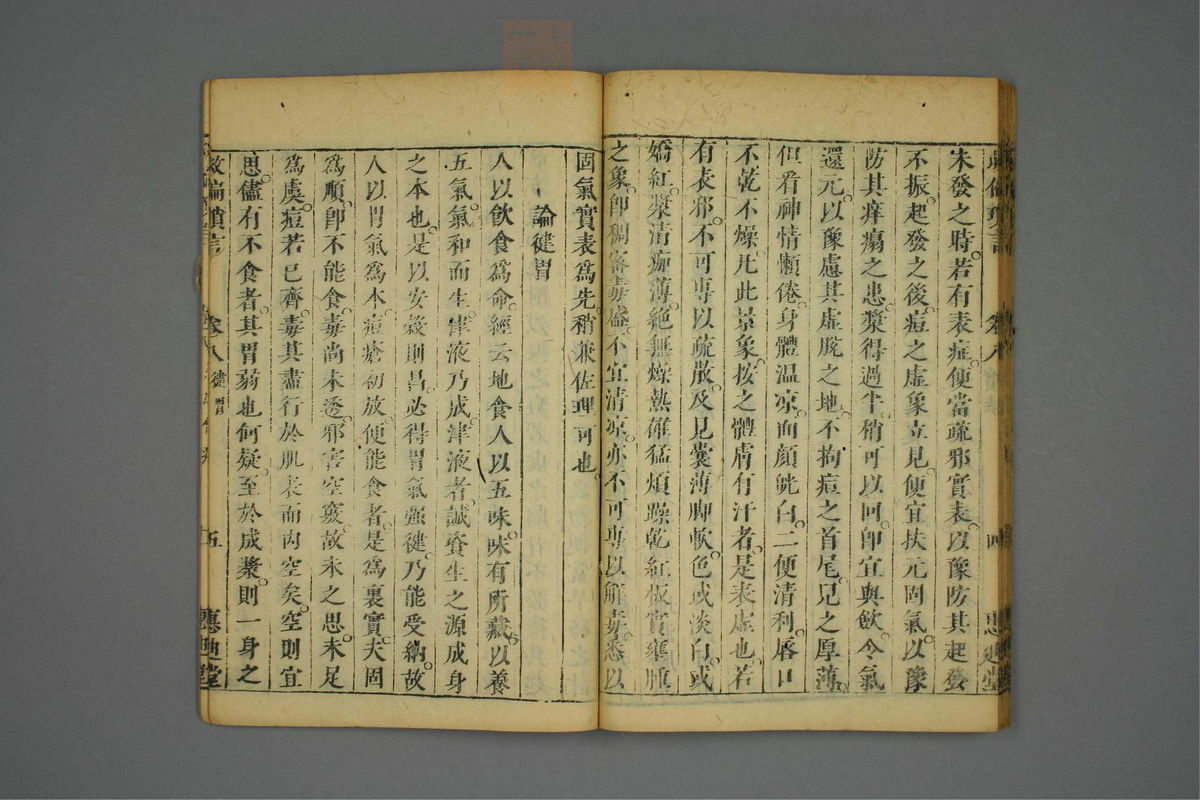 未發之時若有表症便當疏邪實表以豫防其起發
不振起發之後痘之虛象立見便宜扶元固氣以豫
防其痒瘍之患漿得過半稍可以回卽宜與飲令氣
還元以豫慮其虛脫之地不拘痘之首尾兄之厚薄
但看神情懶倦身體温凉面顔㿠白二便清利唇口
不乾不燥凡此景象按之體膚有汗者是表虛也若
有表邪不可専以疏散及見囊薄脚軟色或淡白或
嬌紅漿清痂薄絶無燥熱雄猛煩躁乾紅板實壅腫
之象卽稠密毒盛不宜清凉亦不可専以解毒悉以
固氣實表爲先稍兼佐理可也
論健胃
人以飲食爲命經云地食人以五味味有所藏以養
五氣氣和而生津液乃成津液者誠資生之源成身
之本也是以安穀則昌必得胃氣强健乃能受納故
人以胃氣爲本痘瘡初放便能食者是爲裏實夫固
爲順卽不能食毒尚未透邪害空竅故氷之思未足
爲虞痘若已齊毒其盡行於肌表而内空矣空則宜
思儘有不食者其胃弱也何疑至於成漿則一身之
救偏瑣言 卷八 健胃 五 惠迪堂